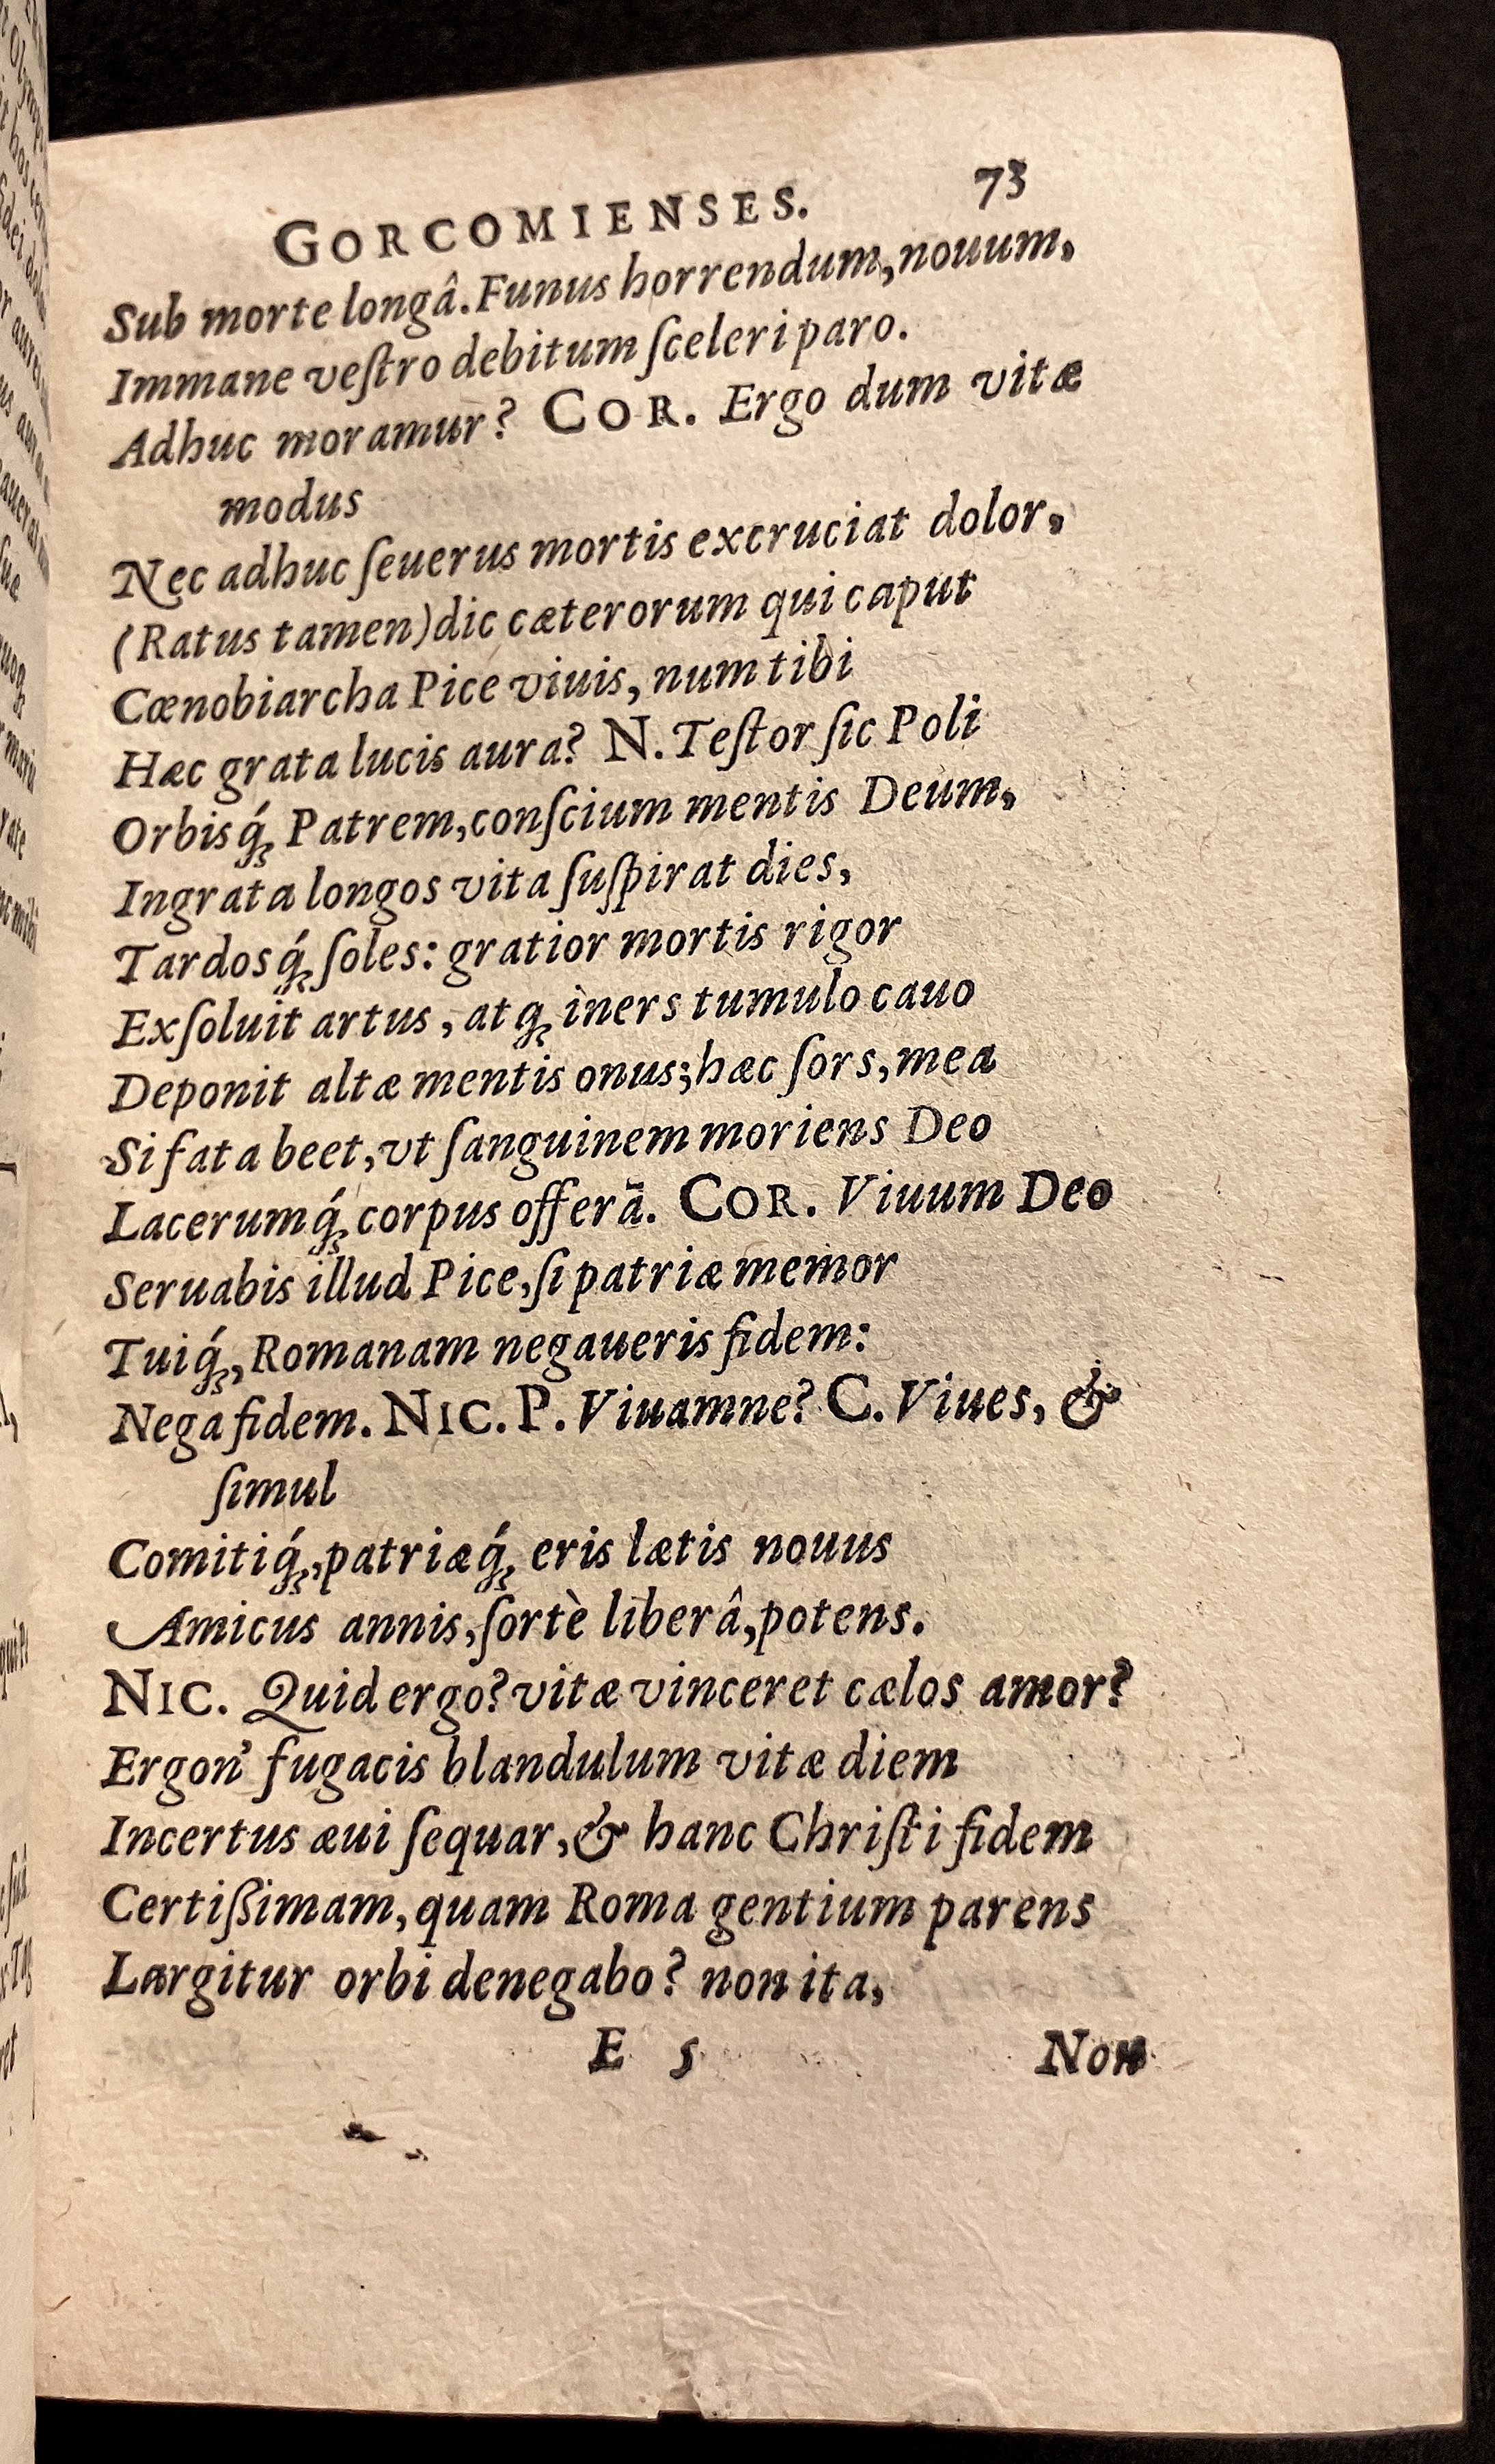 GORCOMIENSES. 73
Sub morte longâ. Funus horrendum, nouum,
Immane veſtro debitum ſceleri paro.
Adhuc moramur? COR. Ergo dum vitæ
modus
Nec adhuc ſeuerus mortis excruciat dolor,
(Ratus tamen) dic cæterorum qui caput
Cœnobiarcha Pice viuis, num tibi
Hæc grata lucis aura? N. Teſtor ſic Poli
Orbisq́ꝫ Patrem, conſcium mentis Deum,
Ingrata longos vita ſuſpirat dies,
Tardosq́ꝫ ſoles: gratior mortis rigor
Exſoluit artus, atqꝫ iners tumulo cauo
Deponit altæ mentis onus; hæc ſors, mea
Si fata beet, vt ſanguinem moriens Deo
Lacerumq́ꝫ corpus offerā. COR. Viuum Deo
Seruabis illud Pice, ſi patriæ memor
Tuiq́ꝫ, Romanam negaueris fidem:
Nega fidem. NIC. P. Viuamne? C. Viues, &
ſimul
Comitiq́ꝫ, patriæq́ꝫ eris lætis nouus
Amicus annis, ſortè liberâ, potens.
NIC. Quid ergo? vitæ vinceret cælos amor?
Ergon' fugacis blandulum vitæ diem
Incertus æui ſequar, & hanc Chriſti fidem
Certißimam, quam Roma gentium parens
Largitur orbi denegabo? non ita,
E 5 Non